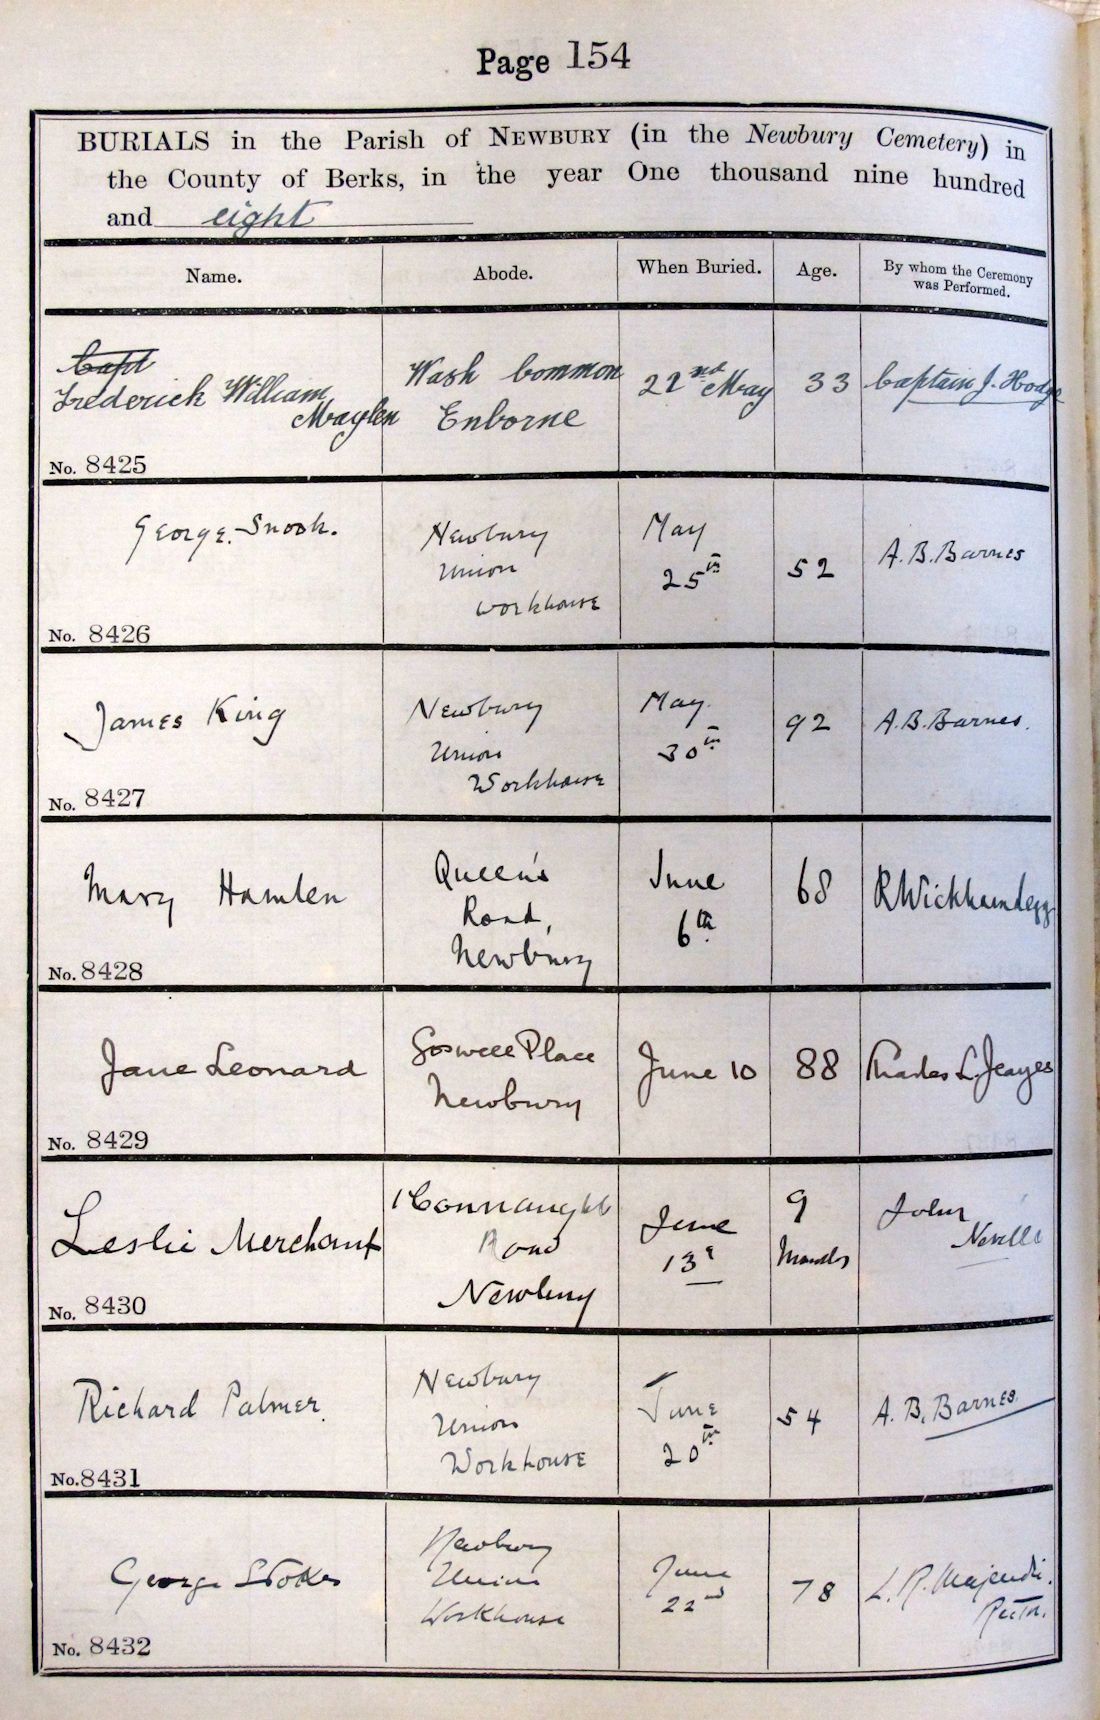 Page 154
BURIALS in the Parish of NEWBURY (in the Newbury Cemetery) in
the County of Berks, in the year One thousand nine hundred
and eight
Name. Abode. When Buried. Age. By whom the Ceremony
was Performed.
Capt
Frederick William
Maylen
Wash Common
Enborne
22nd May
33
Captain J. Hodge
No. 8425
George Snook.
Newbury
Union
Workhouse
May
25th
52
A. B. Barnes
No. 8426
James King
Newbury
Union
Workhouse
May
30th
92
A. B. Barnes.
No. 8427
Mary Hamlen
Queen's
Road,
Newbury
June
6th
68
R Wickham Legg
No. 8428
Jane Leonard
Goswell Place
Newbury
June 10
88
Charles L. Jeayes
No. 8429
Leslie Merchant
1 Connaught
Road
Newbury
June
13
9
Months
John
Neville
No. 8430
Richard Palmer.
Newbury
Union
Workhouse
June
20th
54
A. B. Barnes.
No. 8431
George Stokes
Newbury
Union
Workhouse
June
22nd
78
L. R. Majendie.
Rector.
No. 8432